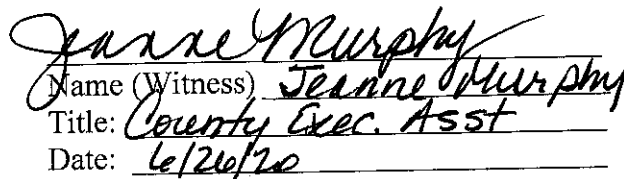 Jeanne Murphy
Name (Witness) Jeanne Murphy
Title: County Exec. Asst
Date: 6/26/20